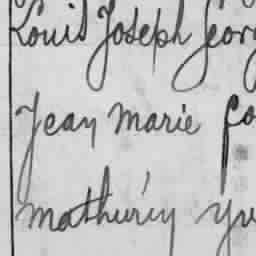 Louis Joseph Georg
Jean Marie
Mathurin